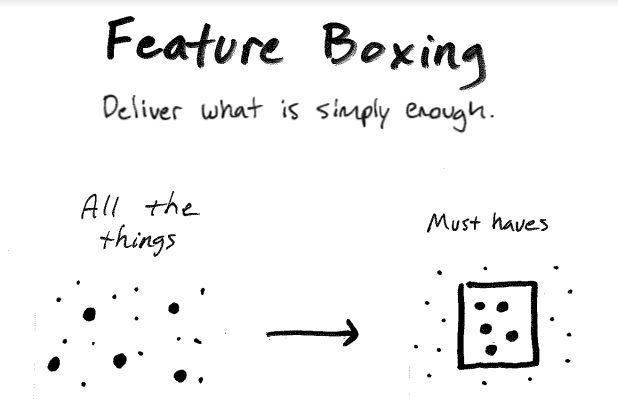 Feature Boxing
Deliver what is simply enough.
All the
things
Must haves